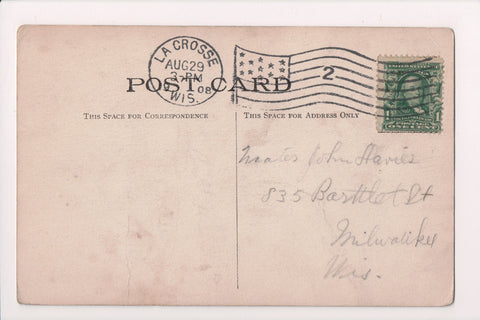 LA CROSSE
AUG 29
3-PM
08
WIS.
2
POST CARD
THIS SPACE FOR CORRESPONDENCE
THIS SPACE FOR ADDRESS ONLY
1 1
ONE CENT
John
835 Bartlet St
Milwaukee
Wis.